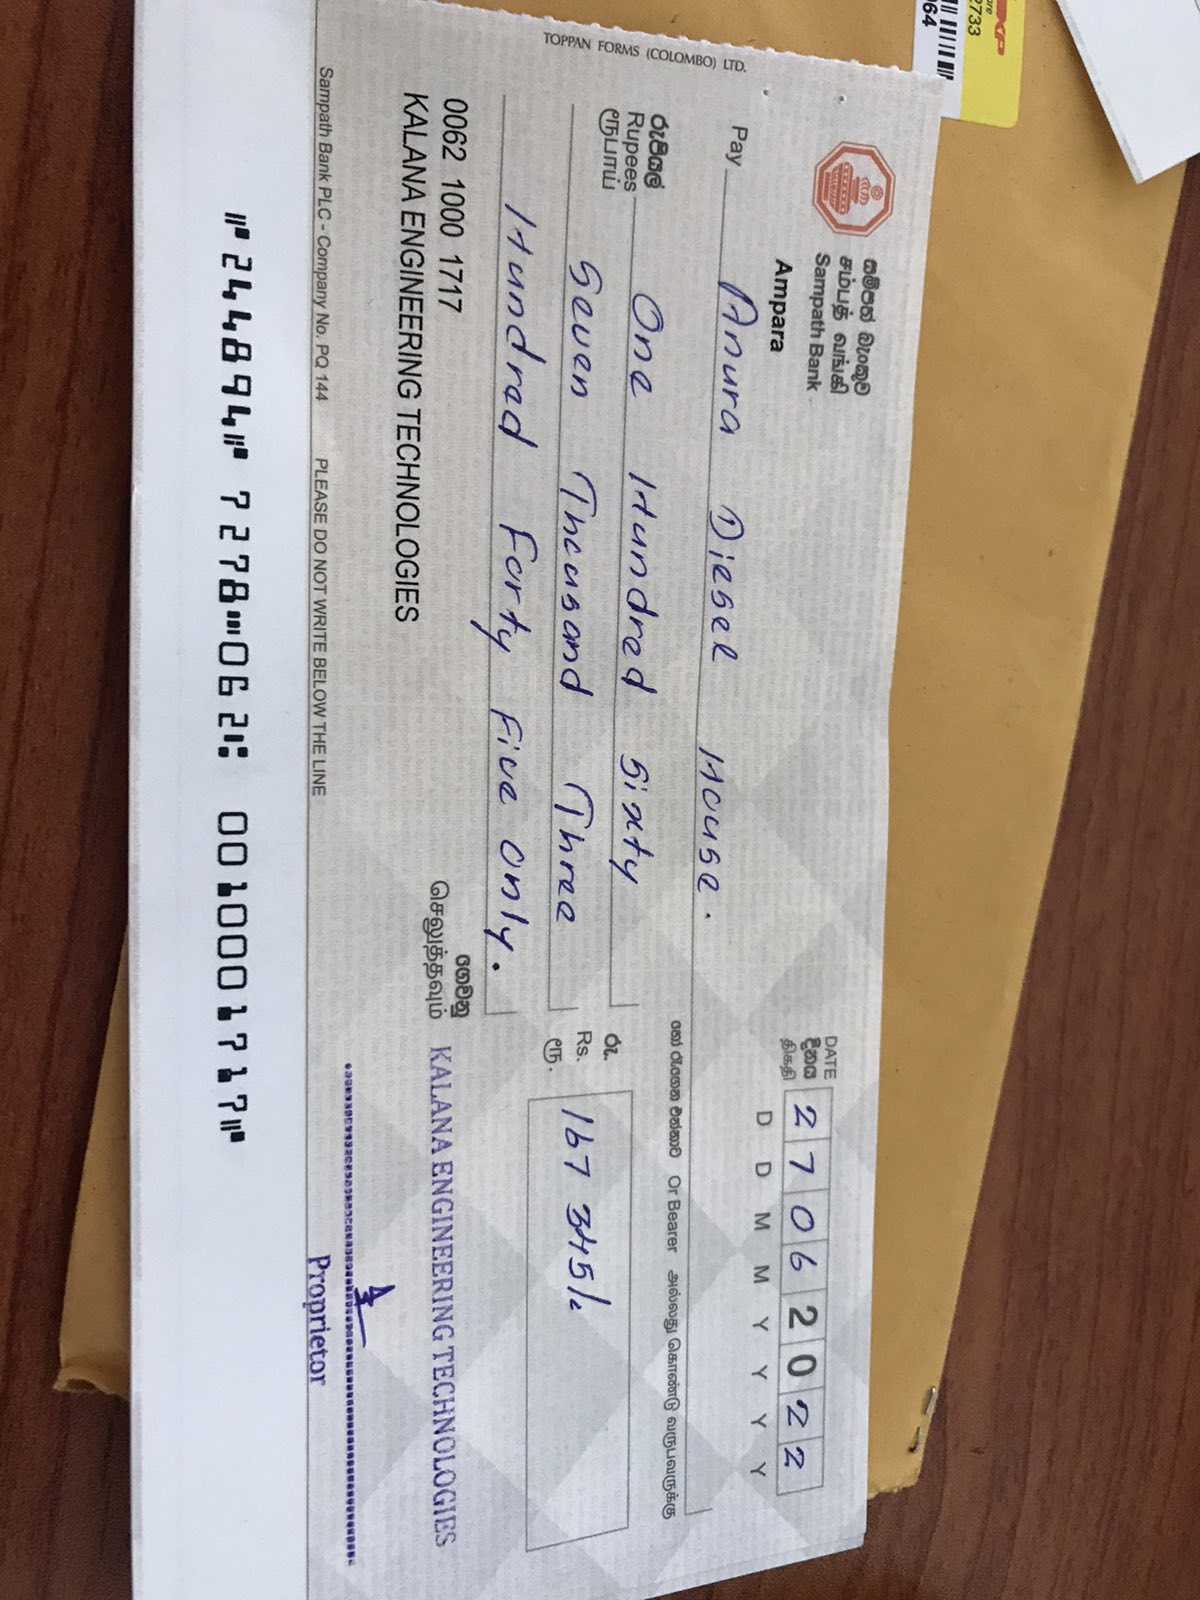 TOPPAN FORMS (COLOMBO) LTD.
සම්පත් බැංකුව
சம்பத் வங்கி
Sampath Bank
Ampara
DATE
දිනය
திகதி
2 7 0 6 2 0 2 2
D D M M Y Y Y Y
Pay Anura Diesel House.
හෝ රැගෙන එන්නාට Or Bearer அல்லது கொண்டு வருபவருக்கு
රුපියල්
Rupees
ரூபாய்
One Hundred Sixty
Seven Thousand Three
Hundrad Forty Five only.
රු.
Rs.
ரூ.
167 345/-
ගෙවනු
செலுத்தவும்
0062 1000 1717
KALANA ENGINEERING TECHNOLOGIES
KALANA ENGINEERING TECHNOLOGIES
Proprietor
Sampath Bank PLC - Company No. PQ 144 PLEASE DO NOT WRITE BELOW THE LINE
⑈244894⑈ 7278⑉062⑆ 0010001717⑈
2733
64